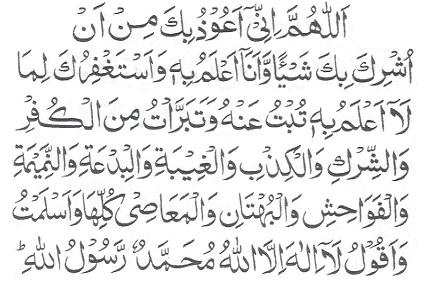 اَللّٰهُمَّ اِنِّیْۤ اَعُوْذُ بِكَ مِنْ اَنْ
اُشْرِكَ بِكَ شَيْئًا وَّاَنَا اَعْلَمُ بِهٖ وَاَسْتَغْفِرُكَ لِمَا
لَاۤ اَعْلَمُ بِهٖ تُبْتُ عَنْهُ وَتَبَرَّاْتُ مِنَ الْكُفْرِ
وَالشِّرْكِ وَالْكِذْبِ وَالْغِيْبَةِ وَالْبِدْعَةِ وَالنَّمِيْمَةِ
وَالْفَوَاحِشِ وَالْبُهْتَانِ وَالْمَعَاصِیْ كُلِّهَا وَاَسْلَمْتُ
وَاَقُوْلُ لَاۤ اِلٰهَ اِلَّا اللهُ مُحَمَّدٌ رَّسُوْلُ اللهِ ؕ